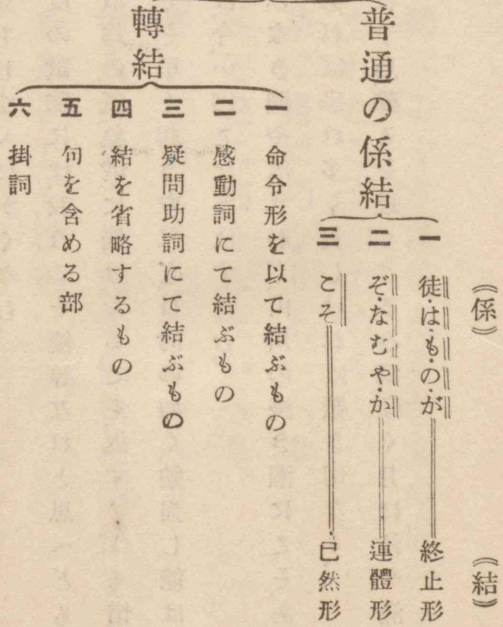 《係》 《結》
普通の係結
一 徒・は・も・の・が 終止形
二 ぞ・なむ・や・か 連體形
三 こそ 已然形
轉結
一 命令形を以て結ぶもの
二 感動詞にて結ぶもの
三 疑問助詞にて結ぶもの
四 結を省略するもの
五 句を含める部
六 掛詞